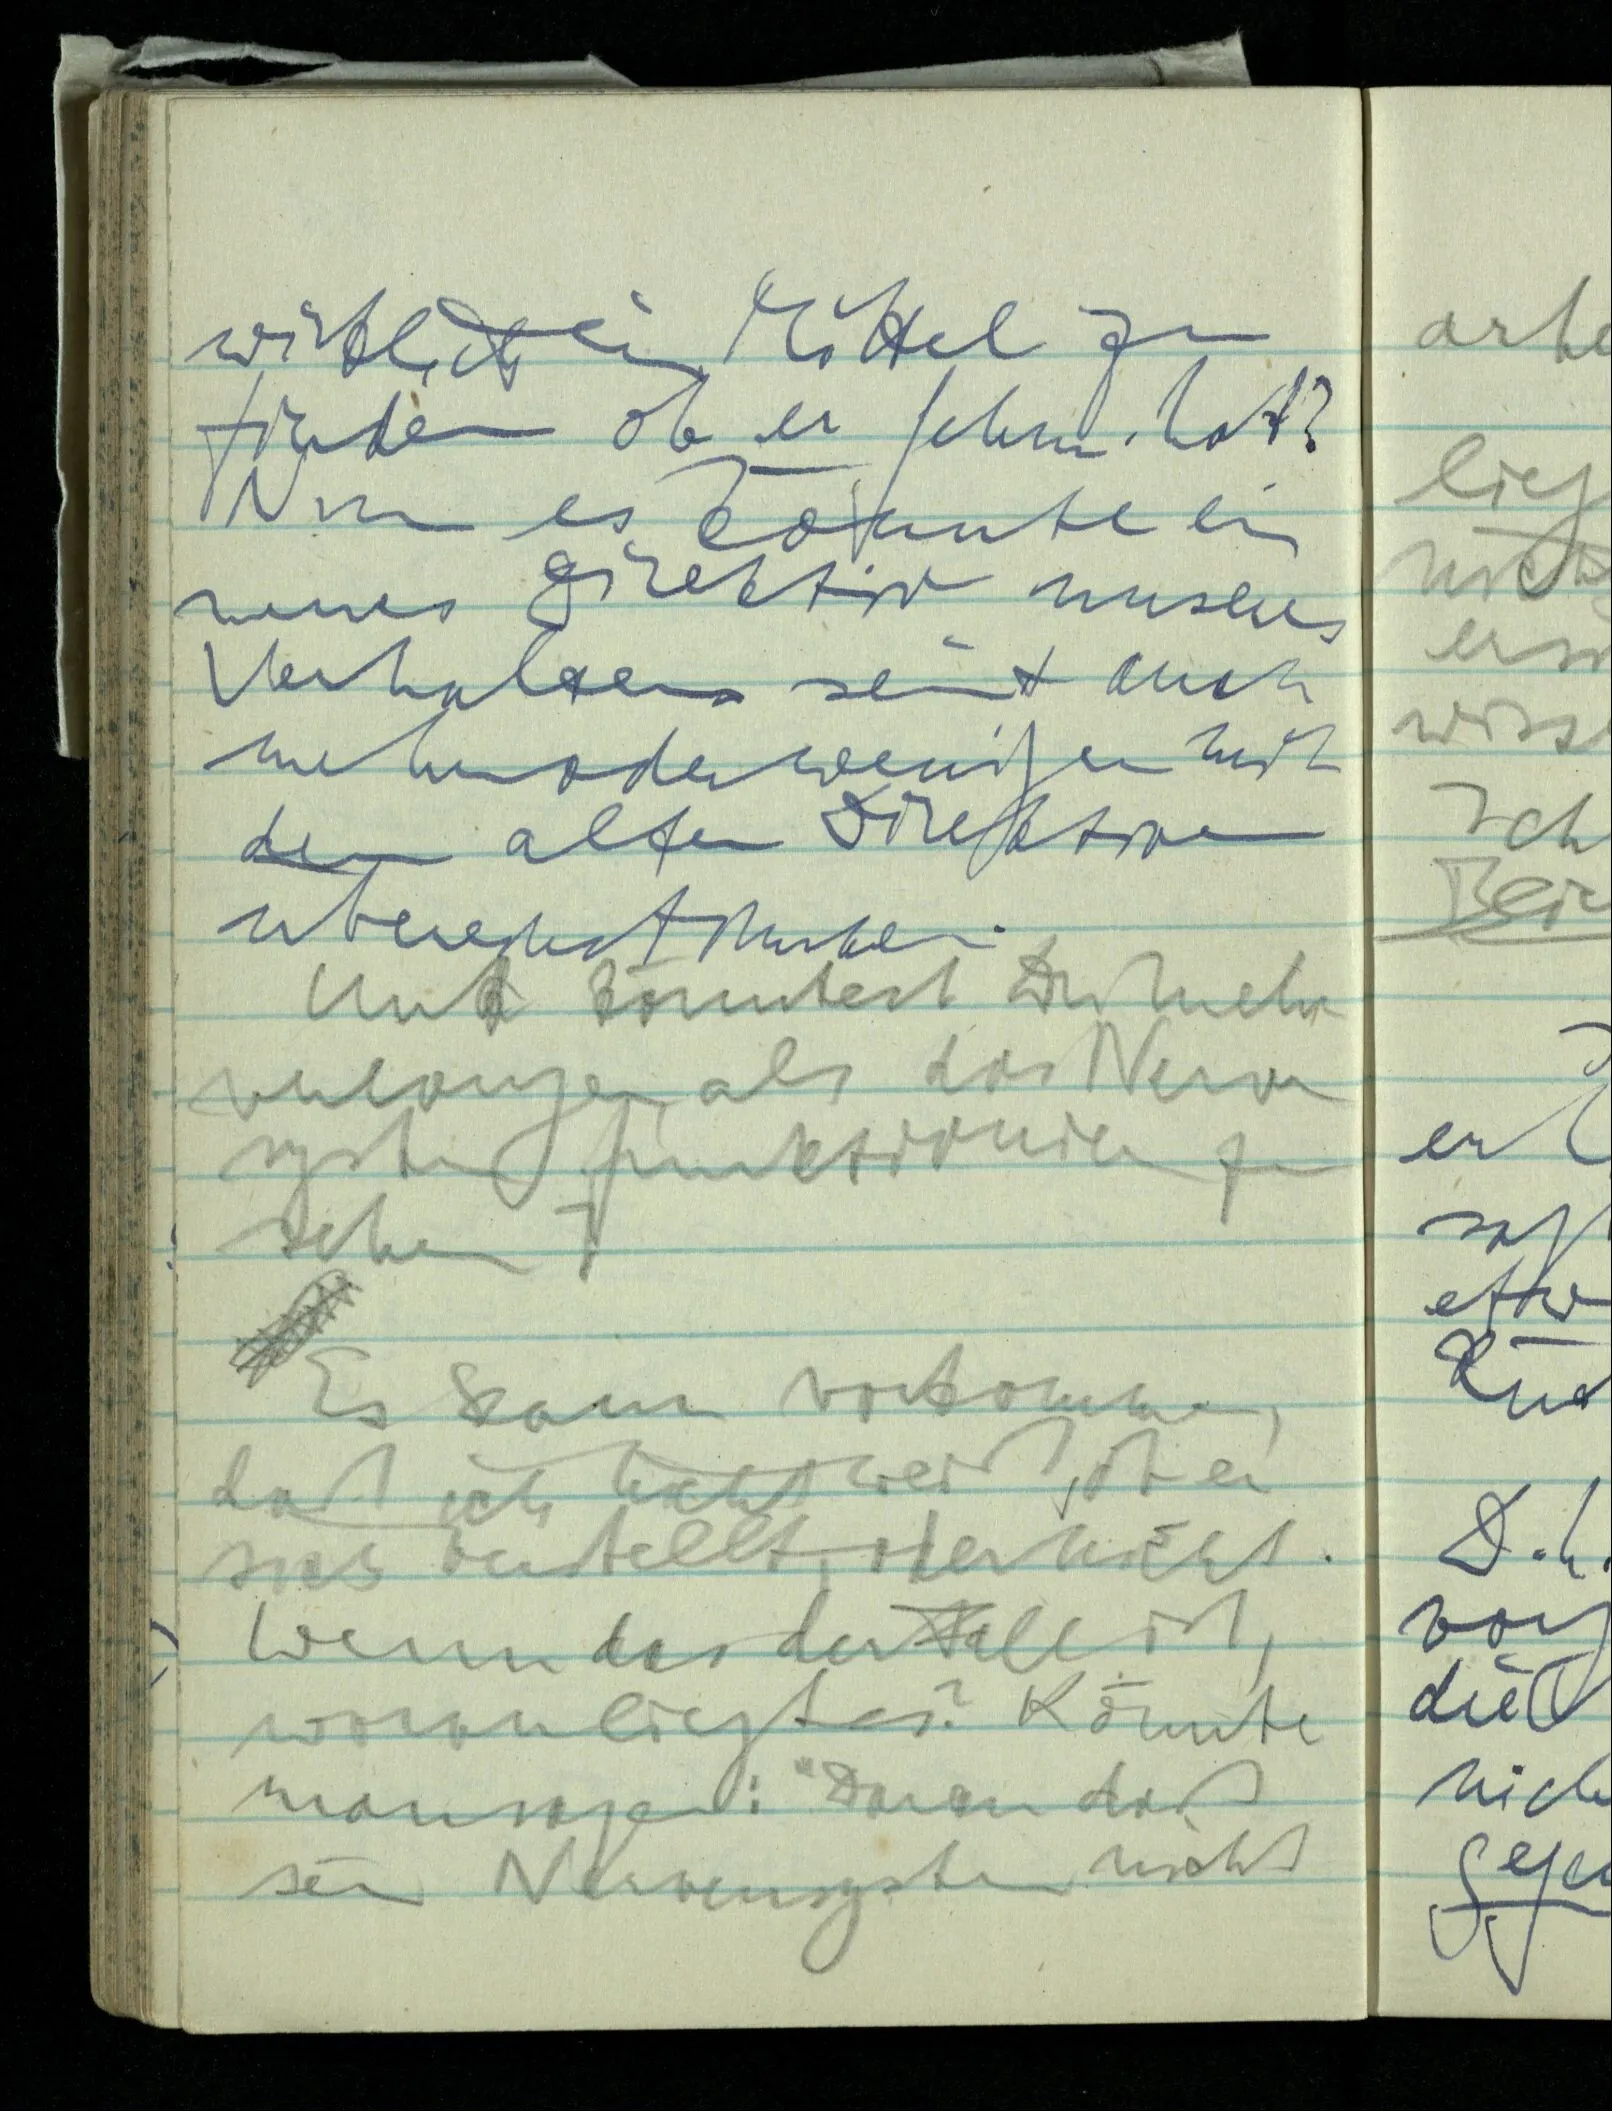 wirklich ein Mittel zu
finden ob er sehen hat?
Nun es könnte ein
neues Direktiv unseres
Verhaltens sein & auch
mehr oder weniger mit
den alten Direktiven
übereinstimmen.
Und könntest Du mehr
verlangen, als das Nerven
system funktionieren zu
sehen?
Es kann vorkommen,
daß ich nicht weiß, ob er
sich verstellt, oder nicht.
Wenn das der Fall ist,
woran liegt es? Könnte
man sagen: "Daran daß
sein Nervensystem nicht
arbe
lieg
nicht
wisse
Ich
er
sag
etw
D.h.
die
nich
gege